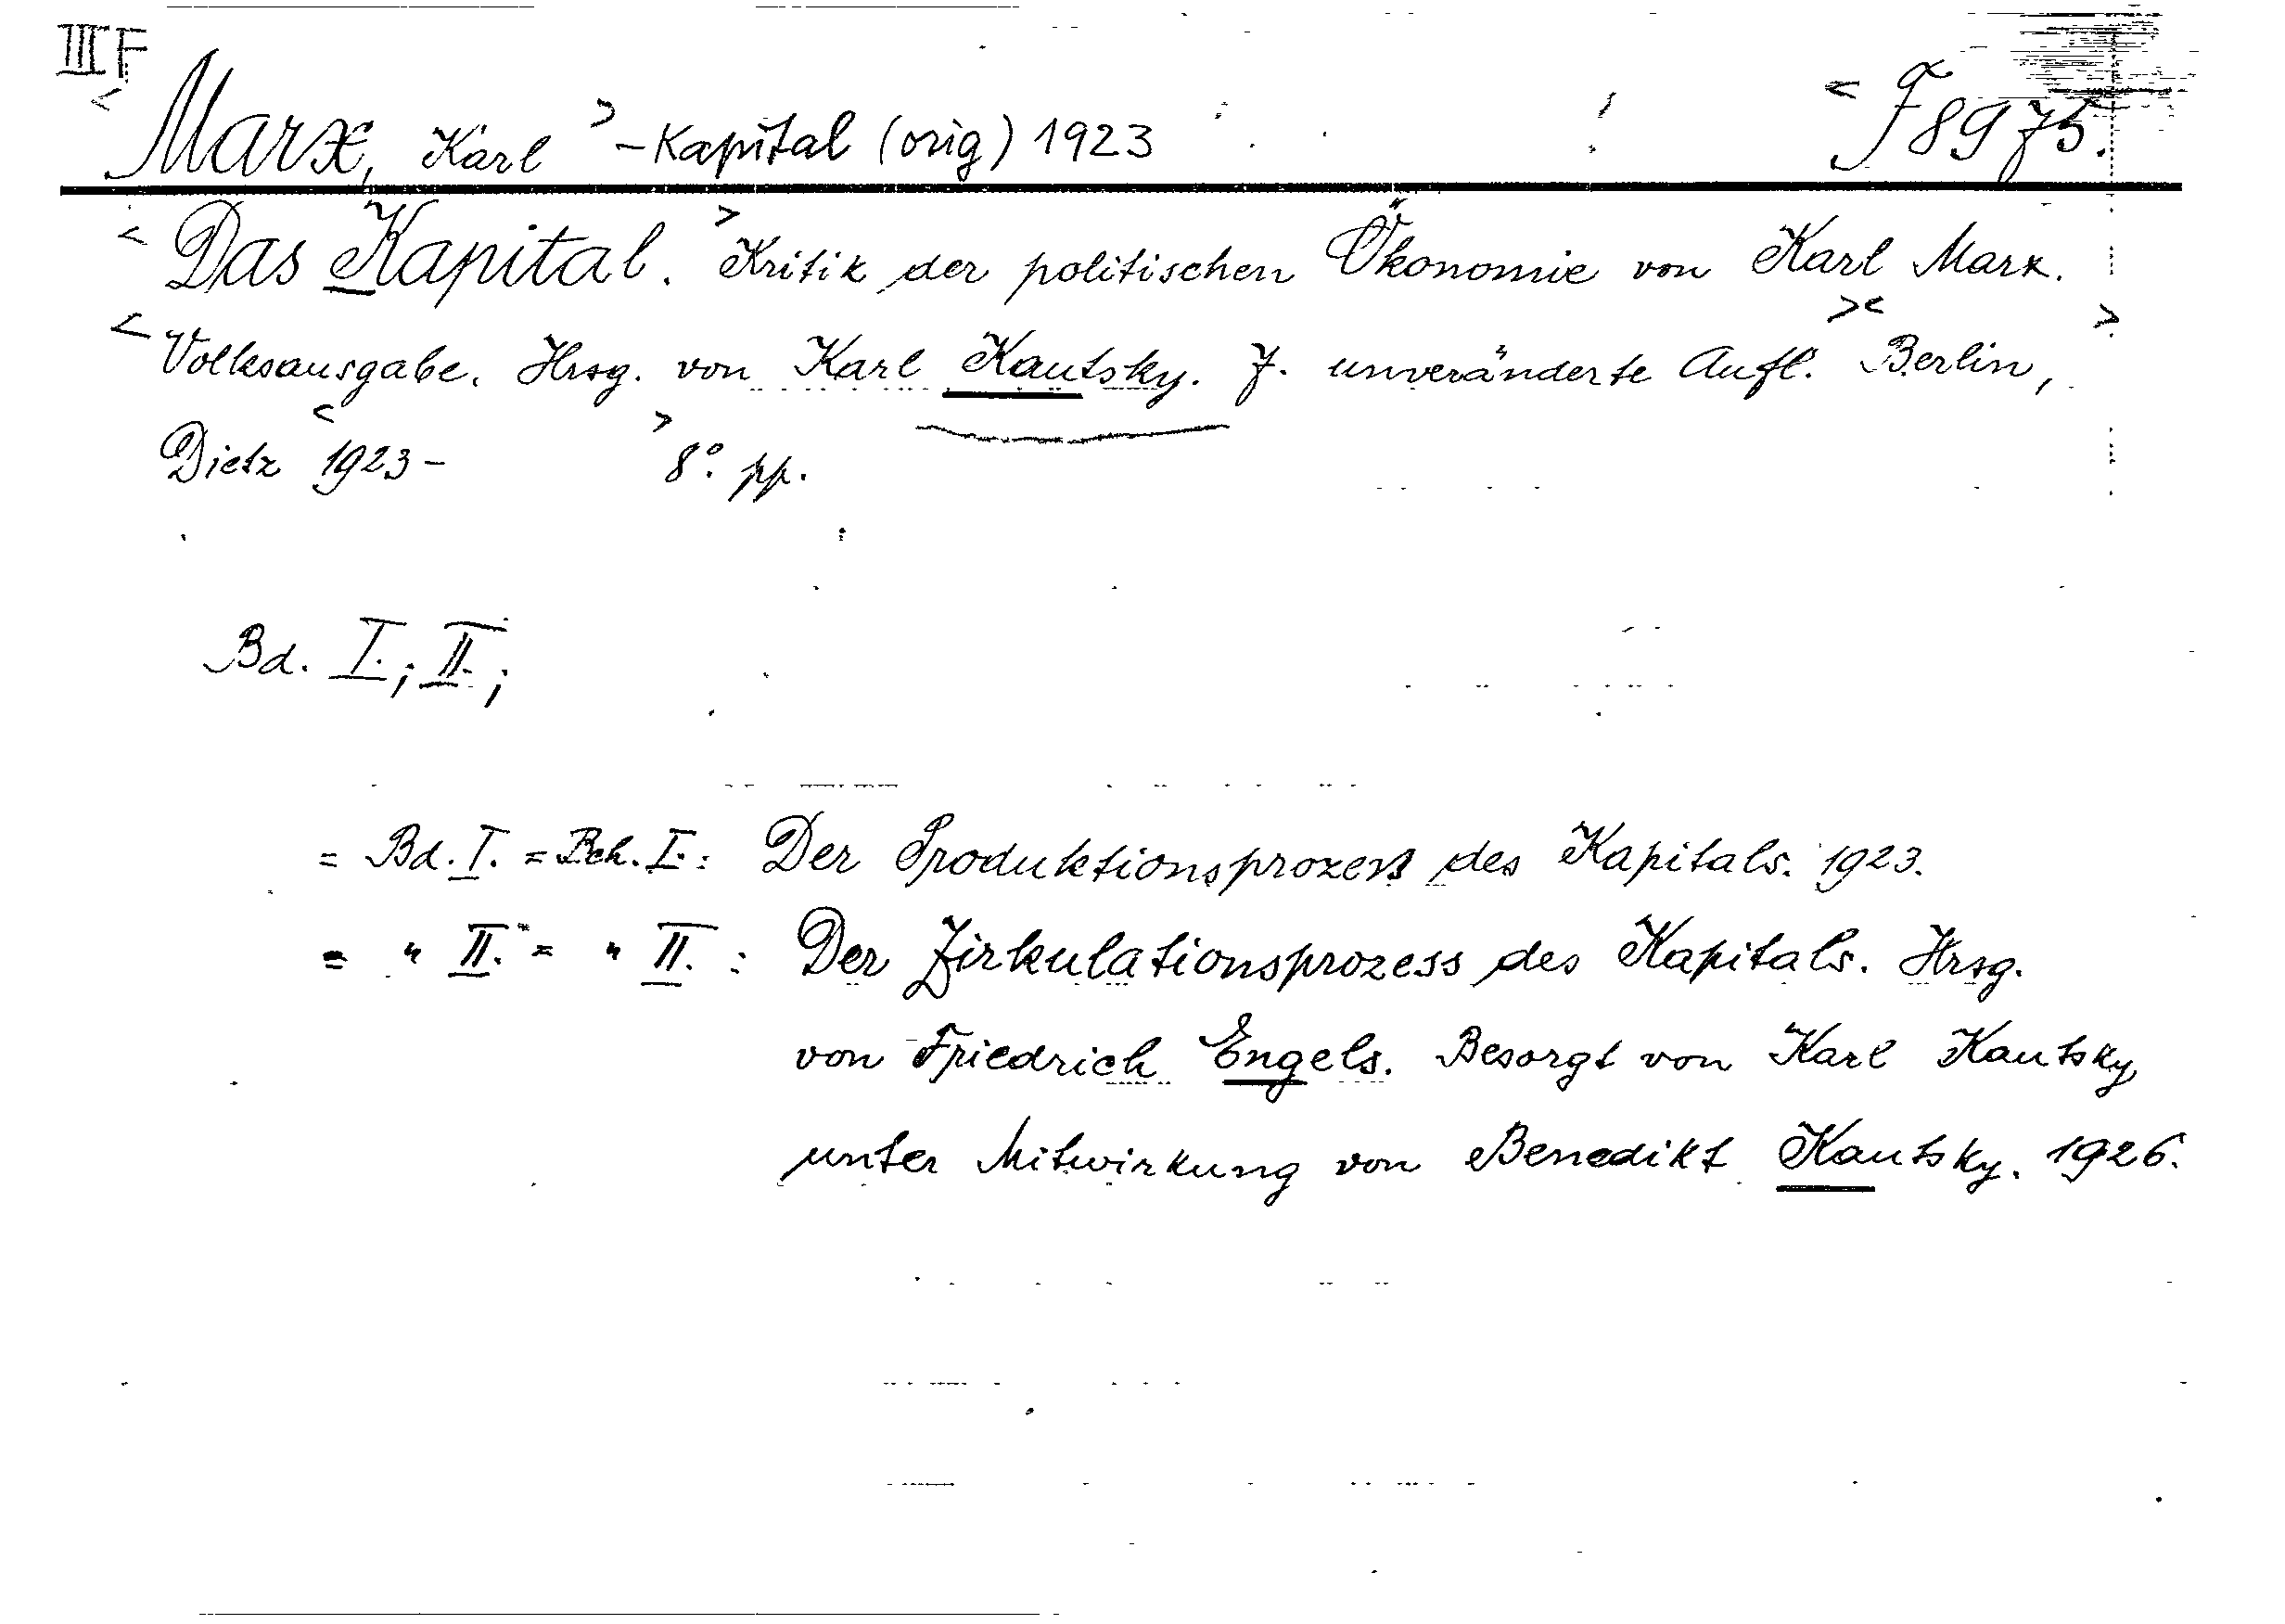 III F
< Marx, Karl > - Kapital (orig) 1923 < F 8975.
< Das Kapital. > Kritik der politischen Ökonomie von Karl Marx.
< Volksausgabe. Hrsg. von Karl Kautsky. 7. unveränderte Aufl. >< Berlin, >
Dietz < 1923 - > 8°. pp.
Bd. I.; II.;
= Bd. I. = Bch. I.: Der Produktionsprozess des Kapitals. 1923.
= " II. = " II. : Der Zirkulationsprozess des Kapitals. Hrsg.
von Friedrich Engels. Besorgt von Karl Kautsky
unter Mitwirkung von Benedikt Kautsky. 1926.